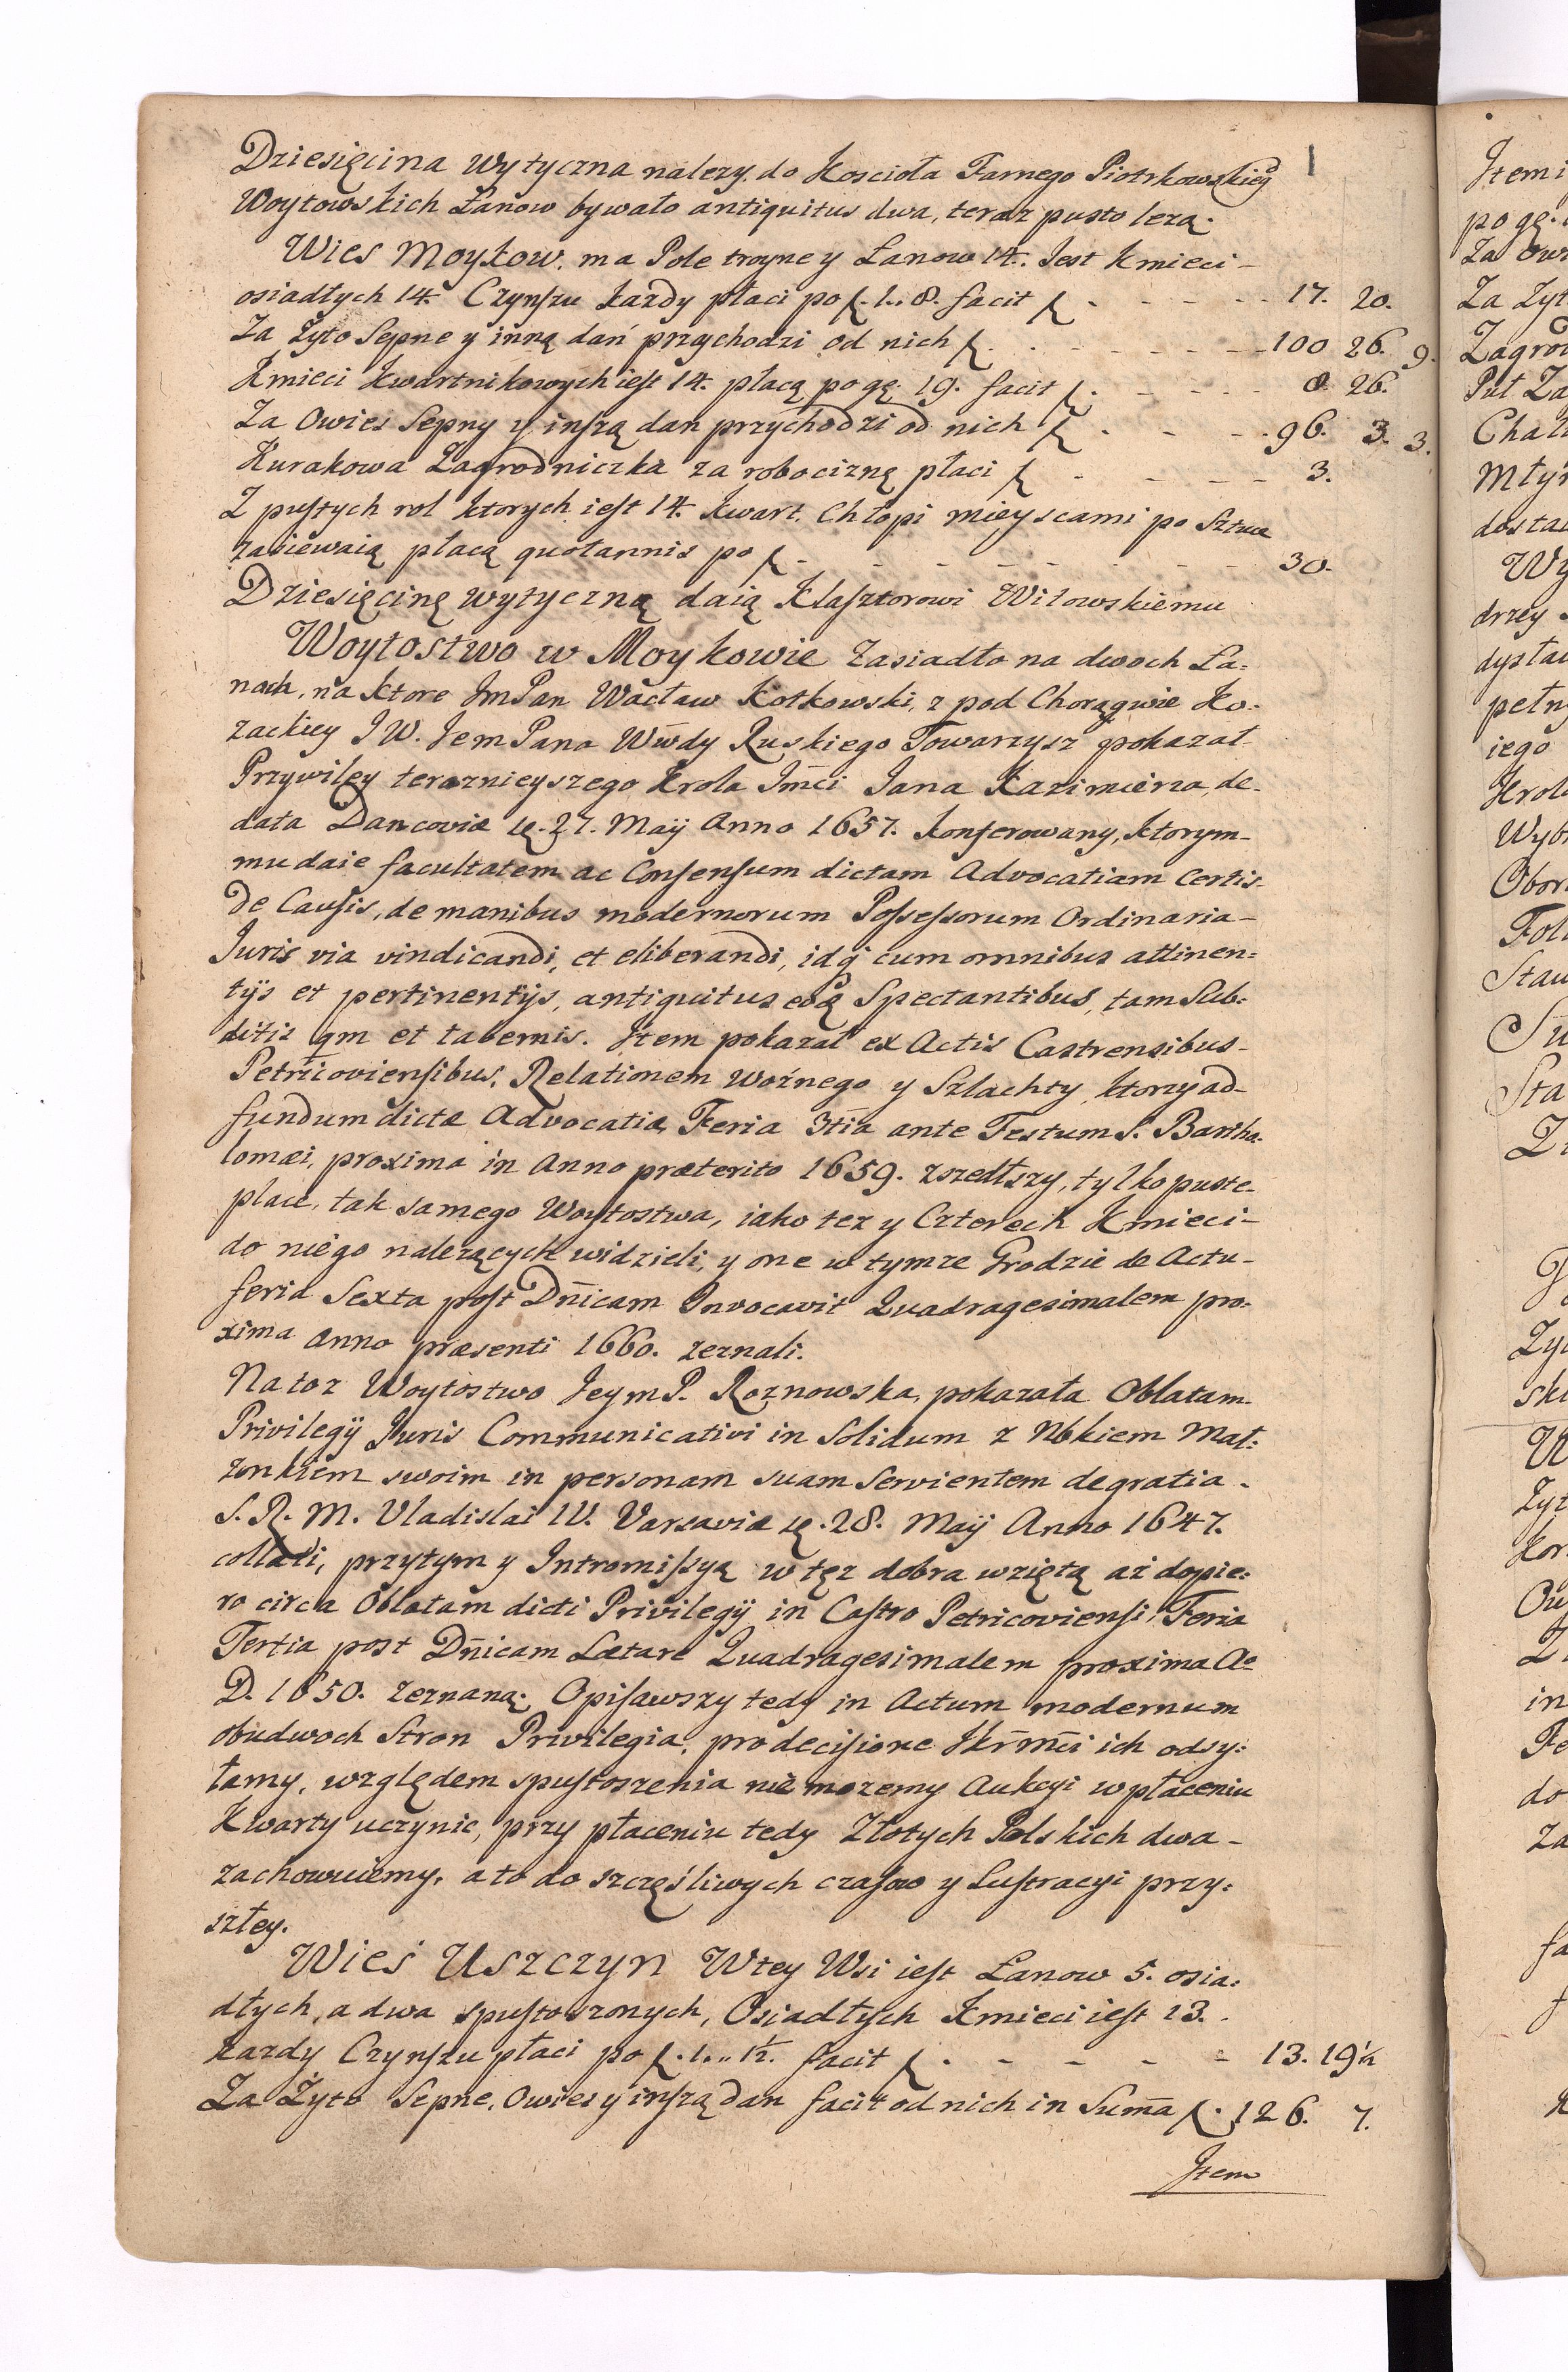 Dziesięcina Wytyczna nalezy do Koscioła Farnego Piotrkowskieg
Woytowskich Łanow bywało antiquitus dwa, teraz pusto lezą.
Wies Moykow. ma Pole troyne y Łanow 14. Jest Kmieci-
osiadłych 14. Czynſzu każdy płaci po f. 1.. 8. facit f - - - - - 17. 20.
Za Zyto Sepne y inną dań przychodzi od nich f. - - - - - 100 26. 9.
Kmieci Kwartnikowych ieſt 14. płacą po gę. 19. facit f. - - - - 8 26.
Za Owies Sepny y inſzą dan przychodzi od nich f - - - - 96. 3. 3.
Kurakowa Zagrodniczka za robociznę płaci f - - - - 3.
Z puſtych rol ktorych ieſt 14. Kwart. Chłopi mieyscami po Sztuce
zasiewaią płacą quotannis po f - - - - - - - 30.
Dziesięcinę wytyczną daią Klaſztorowi Witowskiemu
Woytostwo w Moykowie Zasiadło na dwoch Ła:
nach, na ktore JmPan Wacław Kotkowski, z pod Chorągwie Ko-
zackiey JW. JemPana Ww̄dy Ruskiego Towarzysz pokazał
Przywiley teraznieyszego Krola Jm̄ci Jana Kazimierza, de-
data Dancoviæ ię. 27. Maÿ Anno 1657. Konferowany, Ktorym-
mu daie facultatem ac Conſenſum dictam Advocatiam Certis-
De Cauſis, de manibus modernorum Poſseſsorum Ordinaria-
Juris via vindicandi, et eliberandi, idq́ cum omnibus attinen:
tÿs et pertinentÿs, antiquitus eoq́ Spectantibus, tam Sub:
ditis qm et tabernis. Item pokazał ex Actis Castrensibus-
Petricovienſibus, Relationem woźnego y Szlachty, ktorzy ad-
fundum dictæ Advocatiæ Feria 3tia ante Festum S. Bartho-
lomæi, proxima in Anno præterito 1659. zszedłszy, tylko puste-
place, tak samego Woytostwa, iako tez y Czterech Kmieci-
do niego nalezących widzieli, y one w tymze Grodzie de Actu-
feria Sexta poſt Dn̄icam Invocavit Quadragesimalem pro-
xima Anno præsenti 1660. zeznali.
Na toz Woytostwo JeymP. Roznowska, pokazała Oblatam-
Privilegÿ Juris Communicativi in Solidum z Nbkiem Mał:
zonkiem swoim in personam suam Servientem de gratia -
S. R. M. Vladislai IV. Varsaviæ ię. 28. Maÿ Anno 1647.
collati, przytym y Intromiſsyą w tęz dobra wziętą aż dopie:
ro circa Oblatam dicti Privilegÿ in Caſtro Petricovienſi, Feria
Tertia post Dn̄icam Lætare Quadragesimalem proxima Ao
D. 1650. zeznaną. Opiſawszy tedy in Actum modernum
obudwoch Stron Privilegia, pro deciſione JKr̄m̄ci ich odsy:
łamy, względem spuſtoszenia nie mozemy Aukcyi w płaceniu
Kwarty uczynic, przy płaceniu tedy Złotych Polskich dwa -
zachowuiemy, a to do szczęśliwych czaſow y Luſtracyi przy:
szłey.
Wieś Uszczyn W tey Wsi ieſt Łanow 5. osia:
dłych, a dwa spuſtoszonych, Osiadłych Kmieci ieſt 13.
każdy Czynſzu płaci po f. 1... 1½. facit f. - - - - - 13. 19½
Za Żyto Sepne, Owies y inſzą dan facit od nich in Sum̄a f. 126. 7.
Item